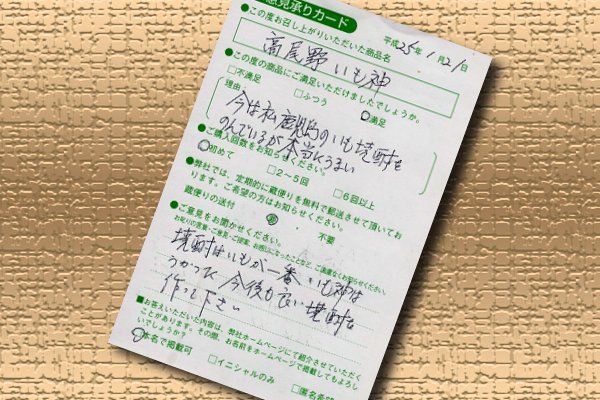 意見承りカード
●この度お召し上がりいただいた商品名
平成25年1月21日
高尾野いも神
●この度の商品にご満足いただけましたでしょうか。
□不満足 □ふつう □満足
理由
今は私鹿児島のいも焼酎を
のんでいるが本当にうまい
●ご購入回数をお知らせください。
□初めて □2～5回 □6回以上
●弊社では、定期的に蔵便りを無料で郵送させて頂いてお
ります。ご希望の方はお知らせください。
蔵便りの送付 ・ 不要
●ご意見をお聞かせください。
焼酎はいもが一番いも神は
うまかった 今後も良い焼酎を
作って下さい
■お答えいただいた内容は、弊社ホームページにて紹介させていただく
ことがあります。その際、お名前をホームページで掲載してもよろし
いでしょうか？
□本名で掲載可 □イニシャルのみ □匿名希望